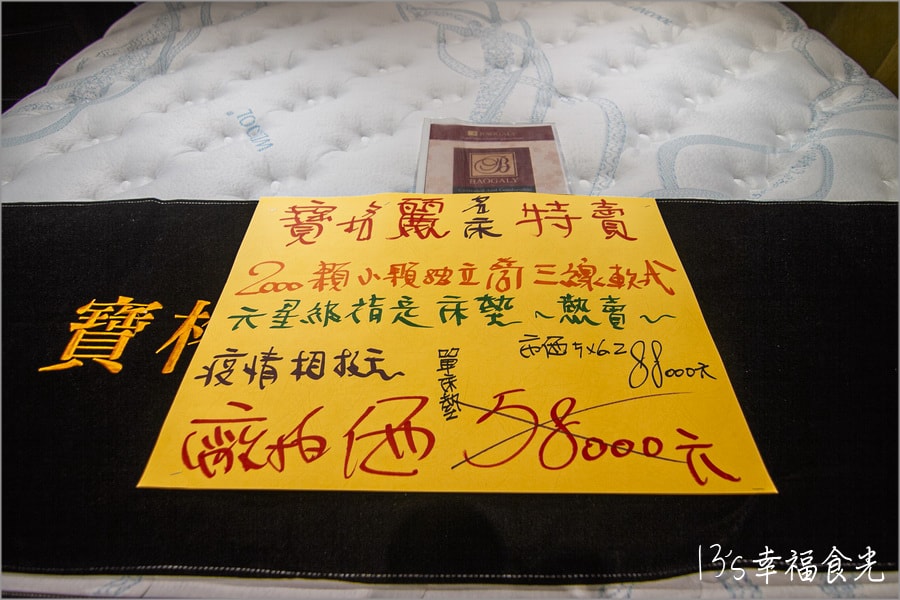 WOOL
BAOGALY
B
BAOGALY
寶格麗名床特賣
2000顆小顆独立筒三線軟式
六星級指定床墊~熱賣~
疫情相挺
單床墊
市価5x62 88000元
廠拍価 58000元
寶格
13's幸福食光